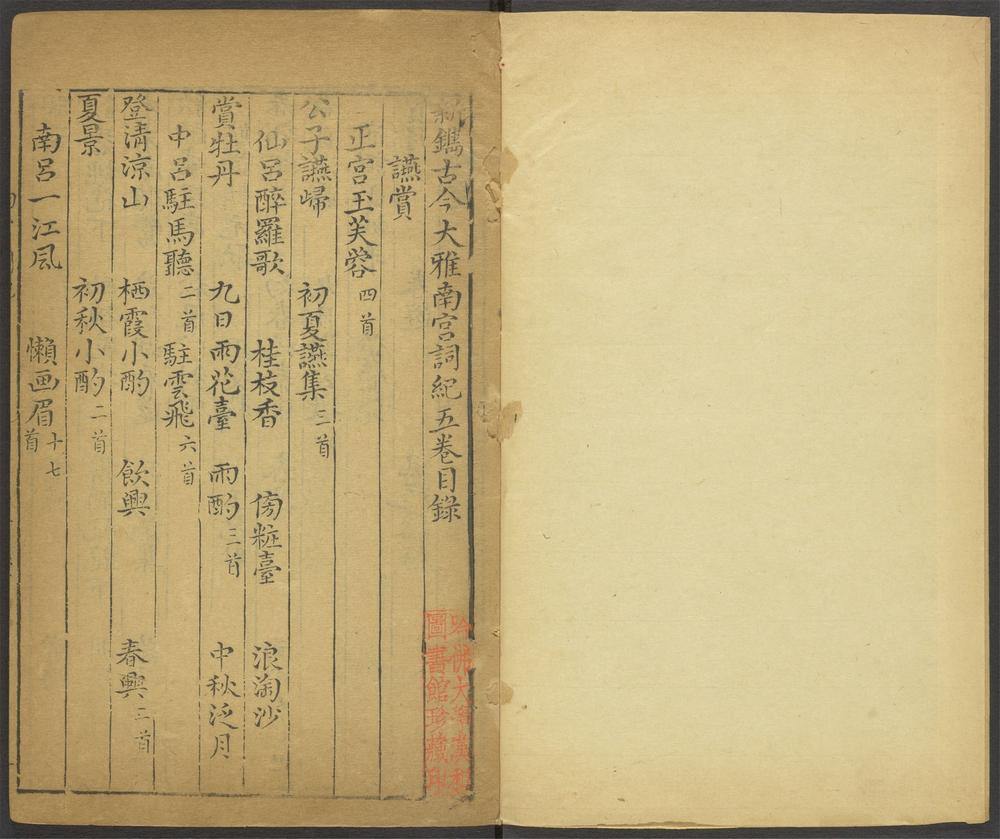 新鐫古今大雅南宮詞紀五卷目錄
讌賞
正宮玉芙蓉 四首
公子讌歸 初夏讌集 三首
仙呂醉羅歌 桂枝香 傍粧臺 浪淘沙
賞牡丹 九日雨花臺 雨酌 三首 中秋泛月
中呂駐馬聽 二首 駐雲飛 六首
登清涼山 栖霞小酌 飲興 春興 二首
夏景 初秋小酌 二首
南呂一江風 懶画眉 十七首
哈佛大學漢和
圖書館珍藏印